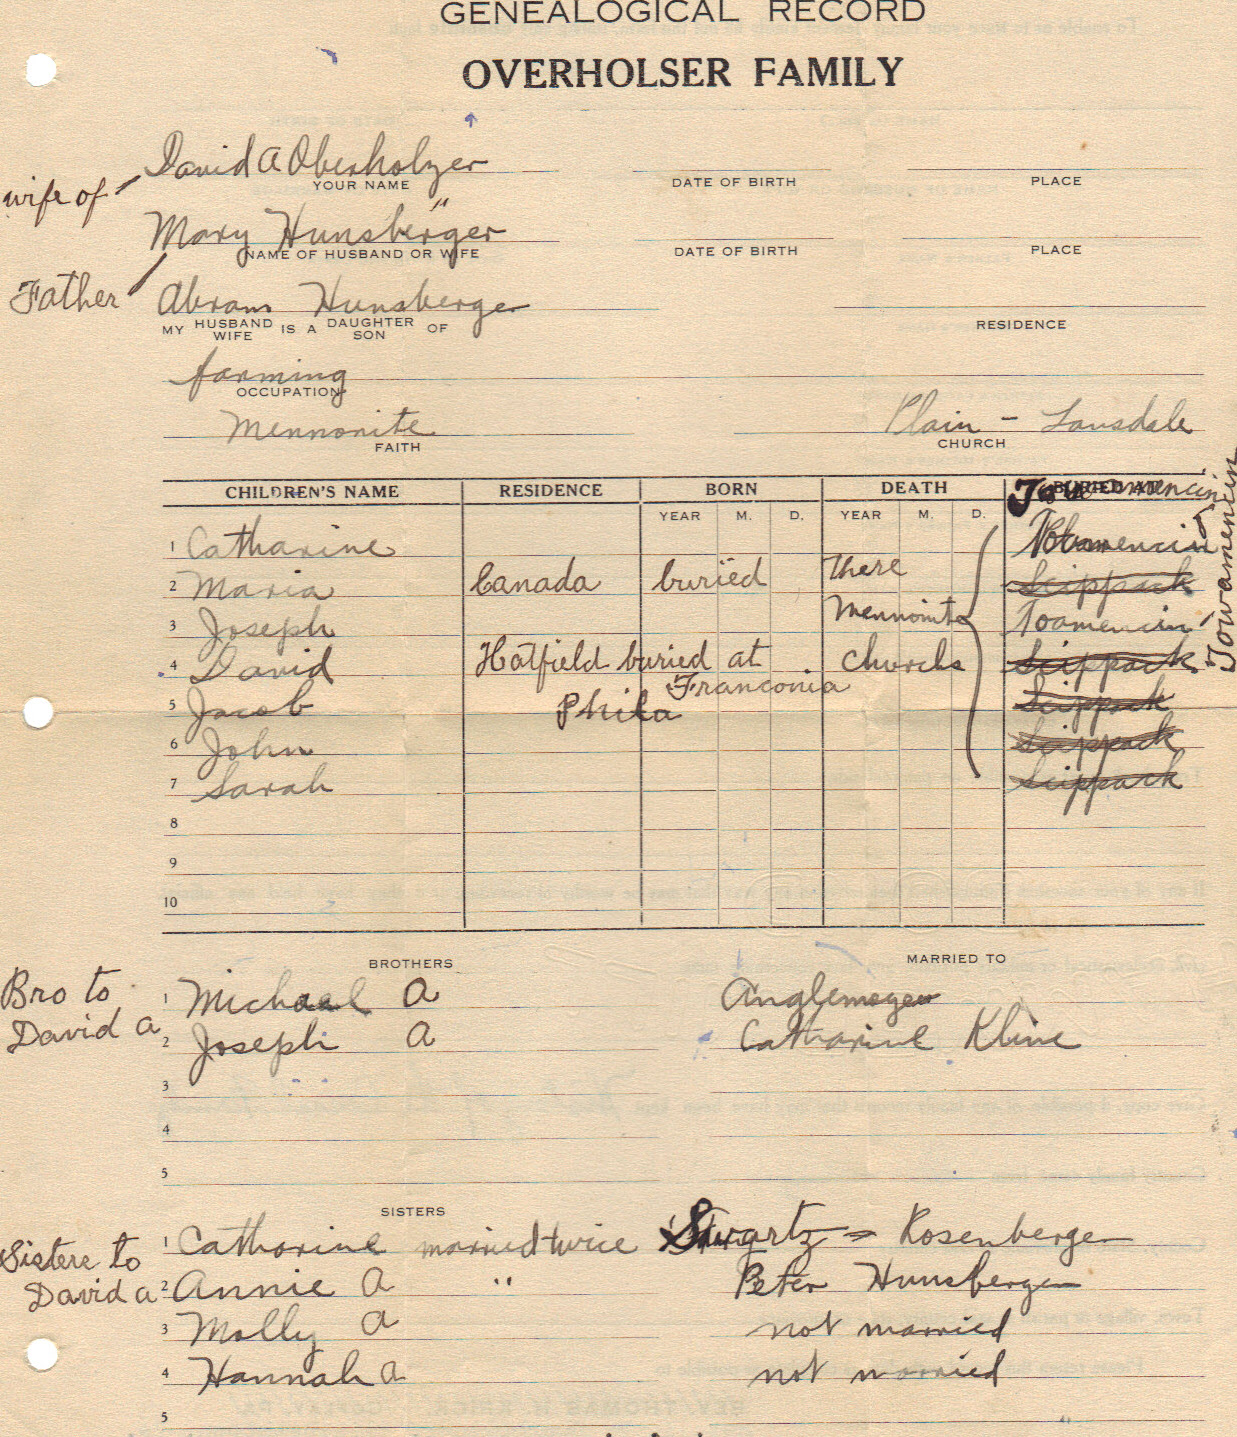 GENEALOGICAL RECORD
OVERHOLSER FAMILY
David A Oberholzer
YOUR NAME DATE OF BIRTH PLACE
wife of
Mary Hunsberger
NAME OF HUSBAND OR WIFE DATE OF BIRTH PLACE
Father Abram Hunsberger
MY HUSBAND WIFE IS A DAUGHTER SON OF RESIDENCE
farming
OCCUPATION
Mennonite Plain - Lansdale
FAITH CHURCH
CHILDREN'S NAME RESIDENCE BORN DEATH BURIED AT
YEAR M. D. YEAR M. D.
Towamencin
1 Catharine
2 Maria Canada buried there Scippack
3 Joseph Mennonite Toamencin
4 David Hatfield buried at church Scippack
5 Jacob Phila Franconia Scippack
6 John Scippack
7 Sarah Scippack
8
9
10
BROTHERS MARRIED TO
Bro to David A
1 Michael A Anglemoyer
2 Joseph A Catharine Kline
3
4
5
SISTERS
Sisters to David A
1 Catharine married twice Swartz = Rosenberger
2 Annie A " Peter Hunsberger
3 Molly A not married
4 Hannah A not married
5 "